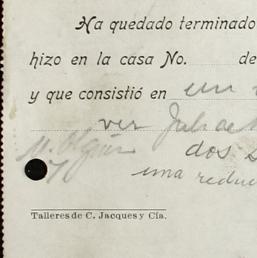 Ha quedado terminado
hizo en la casa No. de
y que consistió en un
ver
dos
una reduc
Talleres de C. Jacques y Cía.